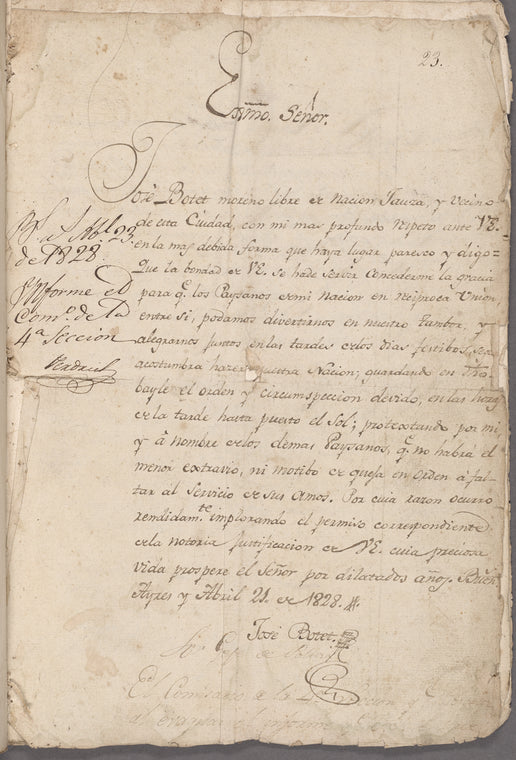 23.
Exmo. Señor.
José Botet moreno libre de Nacion Jauza, y Vecino
de esta Ciudad, con mi mas profundo respeto ante VE.
en la mas debida forma que haya lugar paresco y digo=
Que la bondad de VE. se hade servir Concederme la gracia
para q.e los Paysanos demi Nacion en reciproca Union
entre Si, podamos divertirnos en nuestro tambor, y
alegrarnos juntos en las tardes delos dias festibos, Seg.n
acostumbra hacer nuestra Nacion; guardando en Nro
bayle el orden y circumspeccion devido, en las horas
de la tarde hasta puesto el Sol; protextando por mi,
y â nombre delos demas Paysanos, q.e no habrá el
menor extravio, ni motibo de quexa en orden â fal-
tar al Servicio de sus Amos. Por cuia razon ocurro
rendidam.te implorando el permiso correspondiente
dela notoria justificacion de VE. cuia preciosa
vida prospere el Señor por dilatados años. Buen.s
Ayres y Abril 21. de 1828.
José Botet.
Bs. As. Abl. 23
de 1828
Informe el
Com.o de la
4.a Seccion
El Comisario de la 4.a Seccion
al evacuar el informe